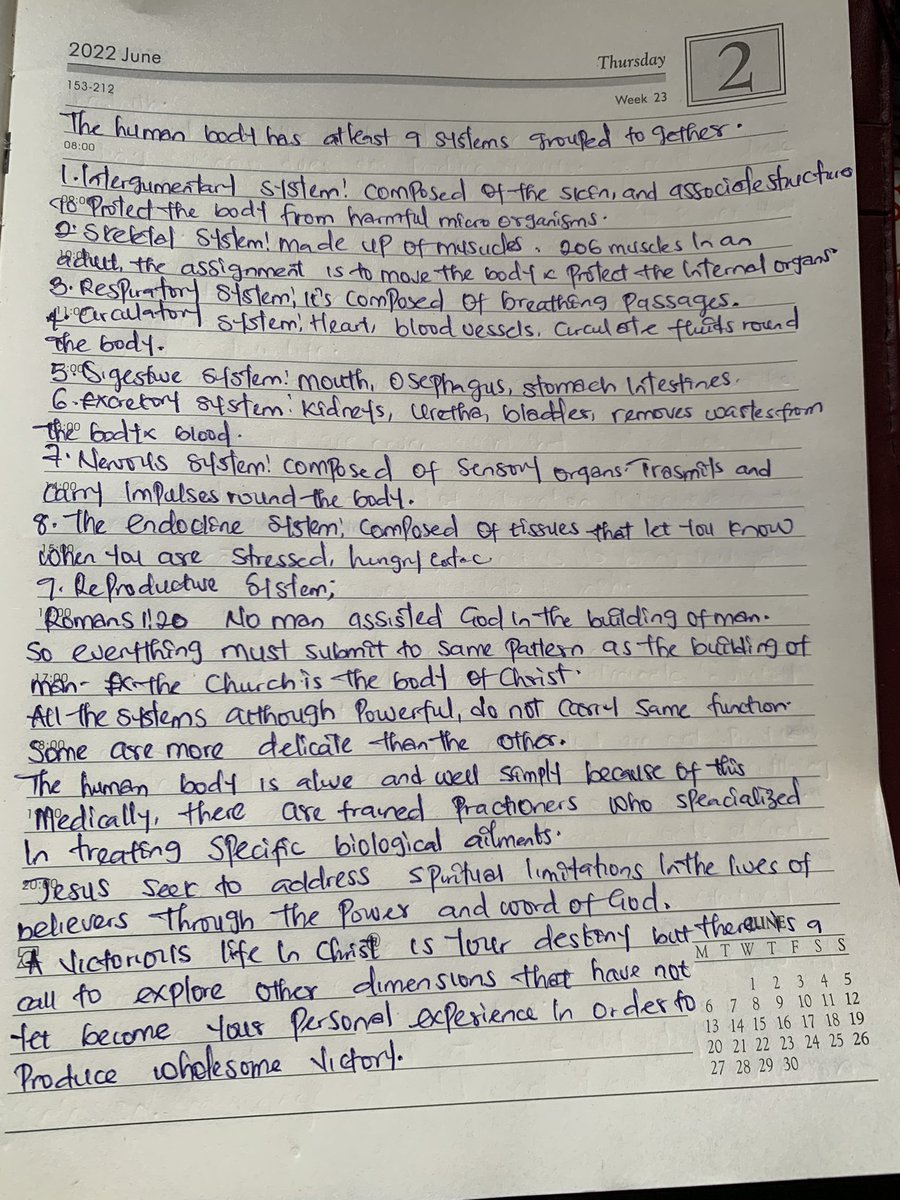 2022 June
Thursday
2
153-212
Week 23
The human body has atleast 9 systems grouped to gether.
08:00
1. Intergumentary system! composed of the skin, and associate structure
Protect the body from harmful micro organisms.
2. Skeletal system! made up of musucles. 206 muscles in an
adult, the assignment is to move the body & Protect the Internal organs.
3. Respiratory system! It's composed of breathing passages.
4. Circulatory system! Heart, blood vessels. Circulate fluids round
the body.
5. Digestive system! mouth, Osephagus, stomach Intestines.
6. Excretory system! kidneys, uretha, bladdes, removes wastes from
the body & blood.
7. Nervous system! composed of sensory organs. Trasmits and
carry Impulses round the body.
8. The endocline system; composed of tissues that let you know
when you are stressed, hungry
9. Reproductive system;
Romans 1:20 No man assisted God in the building of man.
So everything must submit to same pattern as the building of
man- the Church is the body of Christ.
All the systems although Powerful, do not carry same function.
Some are more delicate than the other.
The human body is alive and well simply because of this
Medically, there are trained Practioners who speacialized
In treating specific biological ailments.
Jesus seek to address spiritual limitations In the lives of
believers through the Power and word of God.
A victorious life In Christ is your destiny but there is a
M T W T F S S
call to explore other dimensions that have not
1 2 3 4 5
yet become your Personal experience In order to
6 7 8 9 10 11 12
13 14 15 16 17 18 19
Produce wholesome victory.
20 21 22 23 24 25 26
27 28 29 30